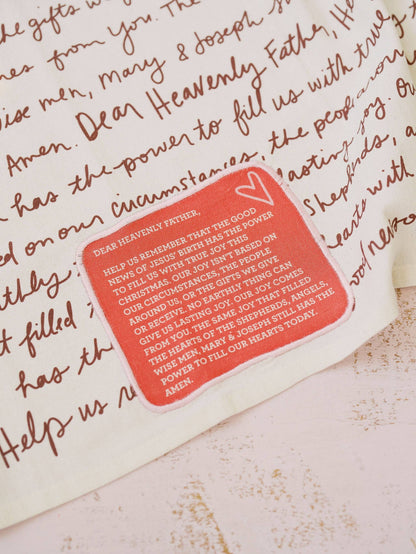 the gifts w
from you. The
wise men, Mary & Joseph s
Amen. Dear Heavenly Father, He
has the power to fill us with true
on our circumstances, the people
lasting joy. Ou
Shepherds, a
hearts with
filled
has th
Help us r
DEAR HEAVENLY FATHER,
HELP US REMEMBER THAT THE GOOD
NEWS OF JESUS' BIRTH HAS THE POWER
TO FILL US WITH TRUE JOY THIS
CHRISTMAS. OUR JOY ISN'T BASED ON
OUR CIRCUMSTANCES, THE PEOPLE
AROUND US, OR THE GIFTS WE GIVE
OR RECEIVE. NO EARTHLY THING CAN
GIVE US LASTING JOY. OUR JOY COMES
FROM YOU. THE SAME JOY THAT FILLED
THE HEARTS OF THE SHEPHERDS, ANGELS,
WISE MEN, MARY & JOSEPH STILL HAS THE
POWER TO FILL OUR HEARTS TODAY.
AMEN.